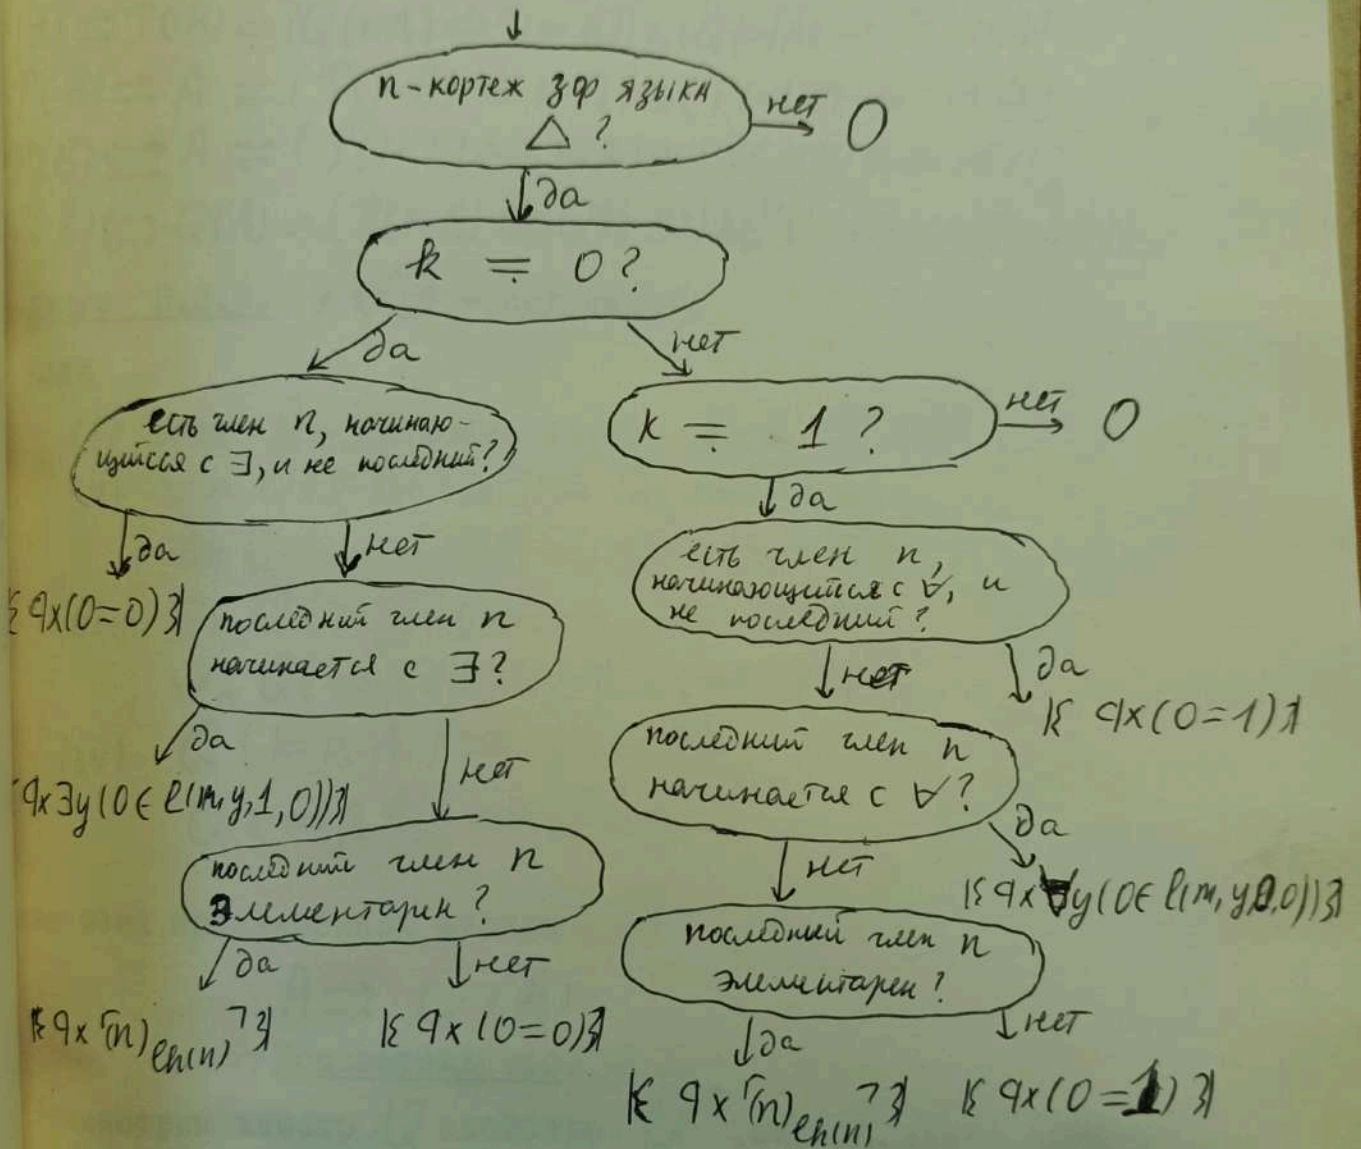 n-кортеж зф языка
△ ?
нет
0
да
k = 0 ?
да
нет
есть член n, начинаю-
щийся с ∃, и не последний?
k = 1 ?
нет
0
да
нет
да
есть член n,
начинающийся с ∀, и
не последний?
{ qx(0=0) }
последний член n
начинается с ∃?
нет
да
{ qx(0=1) }
последний член n
начинается с ∀?
да
нет
qx∃y(0∈ l(m,y,1,0)) }
да
нет
{ qx∀y(0∈ l(m,y,0,0)) }
последний член n
элементарен?
последний член n
элементарен?
да
нет
да
нет
{ qx⌜(n)ₗₕ₍ₙ₎⌝ }
{ qx(0=0) }
{ qx⌜(n)ₗₕ₍ₙ₎⌝ }
{ qx(0=1) }